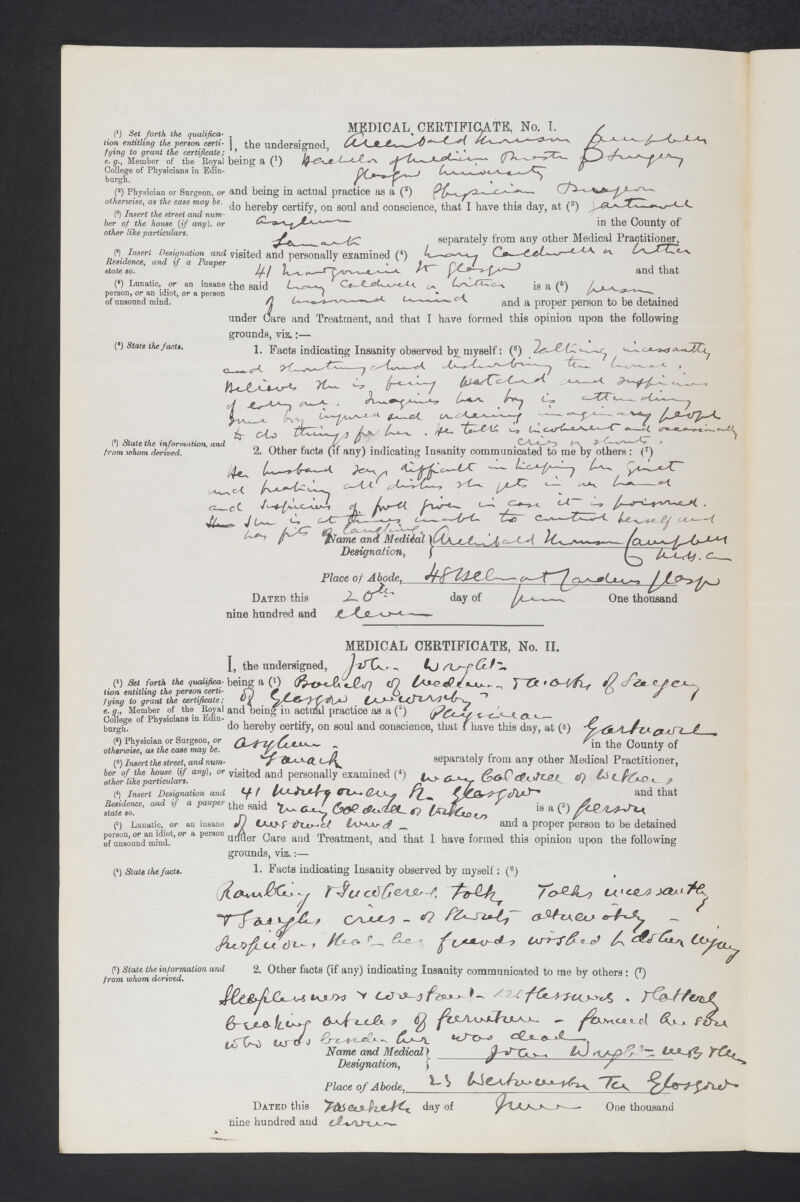 MEDICAL CERTIFICATE, No. I.
(¹) Set forth the qualifica-
tion entitling the person certi-
fying to grant the certificate;
e. g., Member of the Royal
College of Physicians in Edin-
burgh.
(²) Physician or Surgeon, or
otherwise, as the case may be.
(³) Insert the street and num-
ber of the house (if any), or
other like particulars.
(⁴) Insert Designation and
Residence, and if a Pauper
state so.
(⁵) Lunatic, or an insane
person, or an idiot, or a person
of unsound mind.
(⁶) State the facts.
(⁷) State the information, and
from whom derived.
I, the undersigned, Archibald Thomson Campbell
being a (¹) Bachelor of Medicine Master of Surgery
Glasgow University
and being in actual practice as a (²) Physician Surgeon
do hereby certify, on soul and conscience, that I have this day, at (³) Gartnavel
Asylum in the County of
Lanark separately from any other Medical Practitioner,
visited and personally examined (⁴) Mary Caldwell or
41 Montgomerie St Glasgow and that
the said Mary Caldwell or is a (⁵) person
of unsound mind and a proper person to be detained
under Care and Treatment, and that I have formed this opinion upon the following
grounds, viz.:—
1. Facts indicating Insanity observed by myself: (⁶) Talking incessantly
and shouting aloud disturbing the house.
Believes she is being watched and suspicious
of everyone. Imagines her boy is attending
some boy injured and ordering imaginary people
to do things for her. Her talk is incoherent and occasionally
cries or shouts.
2. Other facts (if any) indicating Insanity communicated to me by others: (⁷)
Her husband says difficult in keeping her quiet
and breaking all dishes she gets in her hand
and suspicious of food given in case it is poisoned.
She is at times unable to control herself and
has fits of laughing.
Name and Medical Designation, Archibald Thomson Campbell
M.B. C.M
Place of Abode, 48 Belmont Gardens Glasgow
DATED this 20th day of June One thousand
nine hundred and eleven
MEDICAL CERTIFICATE, No. II.
(¹) Set forth the qualifica-
tion entitling the person certi-
fying to grant the certificate;
e. g., Member of the Royal
College of Physicians in Edin-
burgh.
(²) Physician or Surgeon, or
otherwise, as the case may be.
(³) Insert the street, and num-
ber of the house (if any), or
other like particulars.
(⁴) Insert Designation and
Residence, and if a pauper
state so.
(⁵) Lunatic, or an insane
person, or an idiot, or a person
of unsound mind.
(⁶) State the facts.
(⁷) State the information and
from whom derived.
I, the undersigned, John Wright
being a (¹) Bachelor of Medicine & Master of Surgery
of Glasgow University
and being in actual practice as a (²) Physician
do hereby certify, on soul and conscience, that I have this day, at (³) Gartnavel
Asylum in the County of
Lanark separately from any other Medical Practitioner,
visited and personally examined (⁴) Mary Caldwell or
41 Montgomery St. Glasgow and that
the said Mary Caldwell or is a (⁵) person
of unsound mind and a proper person to be detained
under Care and Treatment, and that I have formed this opinion upon the following
grounds, viz.:—
1. Facts indicating Insanity observed by myself: (⁶)
Rambling & Incoherent talk, Talks incessantly
& laughs cries or shouts alternately
Suspicious that her friends wished to do her injury
2. Other facts (if any) indicating Insanity communicated to me by others: (⁷)
Sleeplessness & constant restlessness.
breaking articles of furniture - fancied her son
who was beside her was dead
Name and Medical Designation, John Wright M.B. & C.M.
Place of Abode, 23 Westminster Ter Glasgow
DATED this Twentieth day of June One thousand
nine hundred and eleven